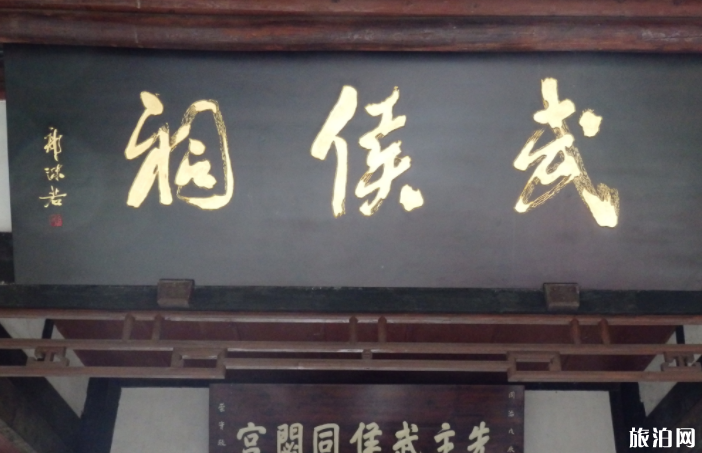 武侯祠
郭沫若
先主武侯同閟宮
旅泊网